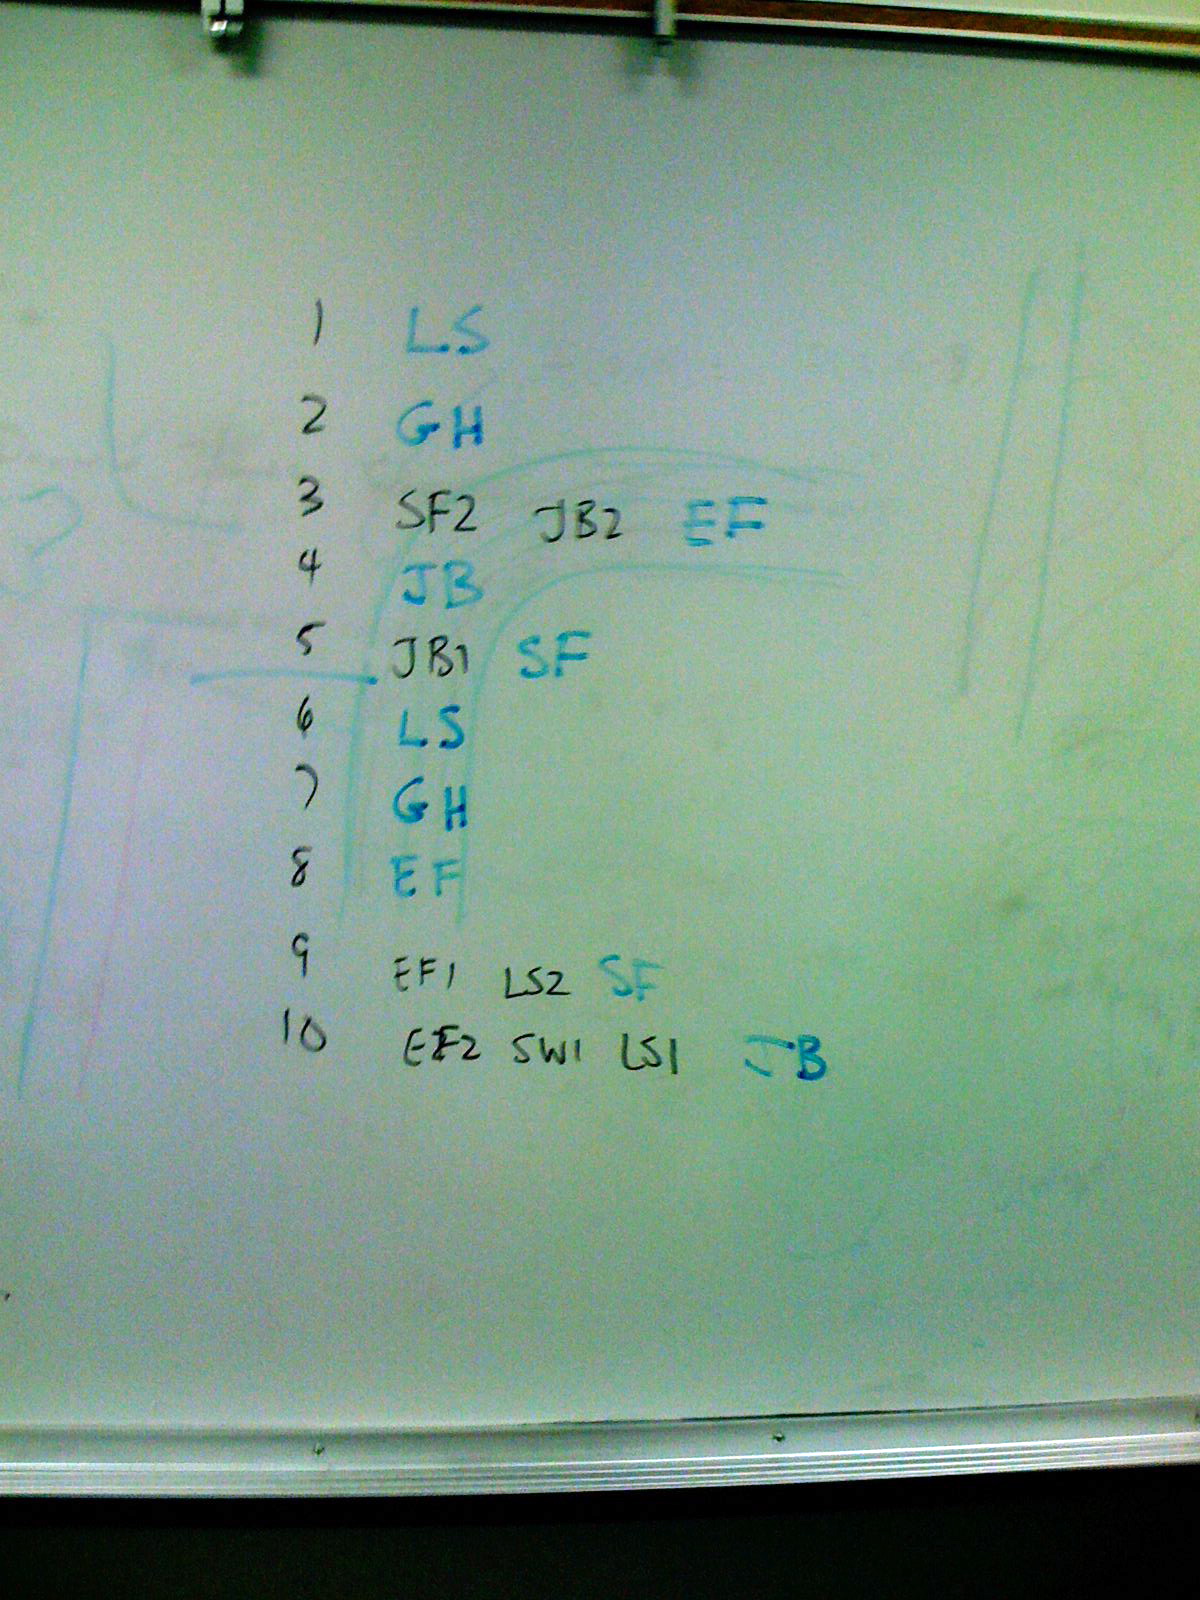 1 LS
2 GH
3 SF2 JB2 EF
4 JB
5 JB1 SF
6 LS
7 GH
8 EF
9 EF1 LS2 SF
10 EF2 SW1 LS1 JB